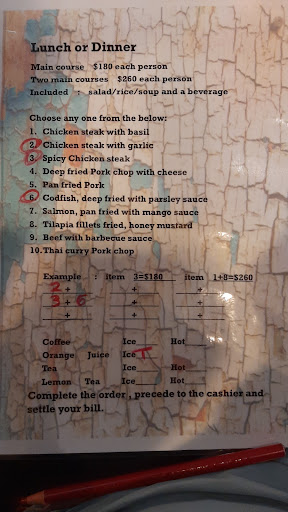 Lunch or Dinner
Main course $180 each person
Two main courses $260 each person
Included : salad/rice/soup and a beverage
Choose any one from the below:
1. Chicken steak with basil
2. Chicken steak with garlic
3. Spicy Chicken steak
4. Deep fried Pork chop with cheese
5. Pan fried Pork
6. Codfish, deep fried with parsley sauce
7. Salmon, pan fried with mango sauce
8. Tilapia fillets fried, honey mustard
9. Beef with barbecue sauce
10. Thai curry Pork chop
Example : item 3=$180 item 1+8=$260
2 + + +
3 + 6 + +
+ + +
Coffee Ice Hot
Orange Juice Ice T
Tea Ice Hot
Lemon Tea Ice Hot
Complete the order , precede to the cashier and
settle your bill.